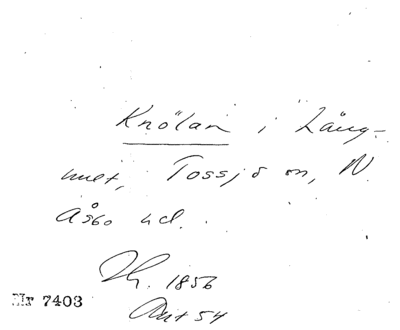 Knölan i Lång-
huet, Tossjö sn, N.
Åsbo hd.
Hg. 1856
Akt 54
Nr 7403